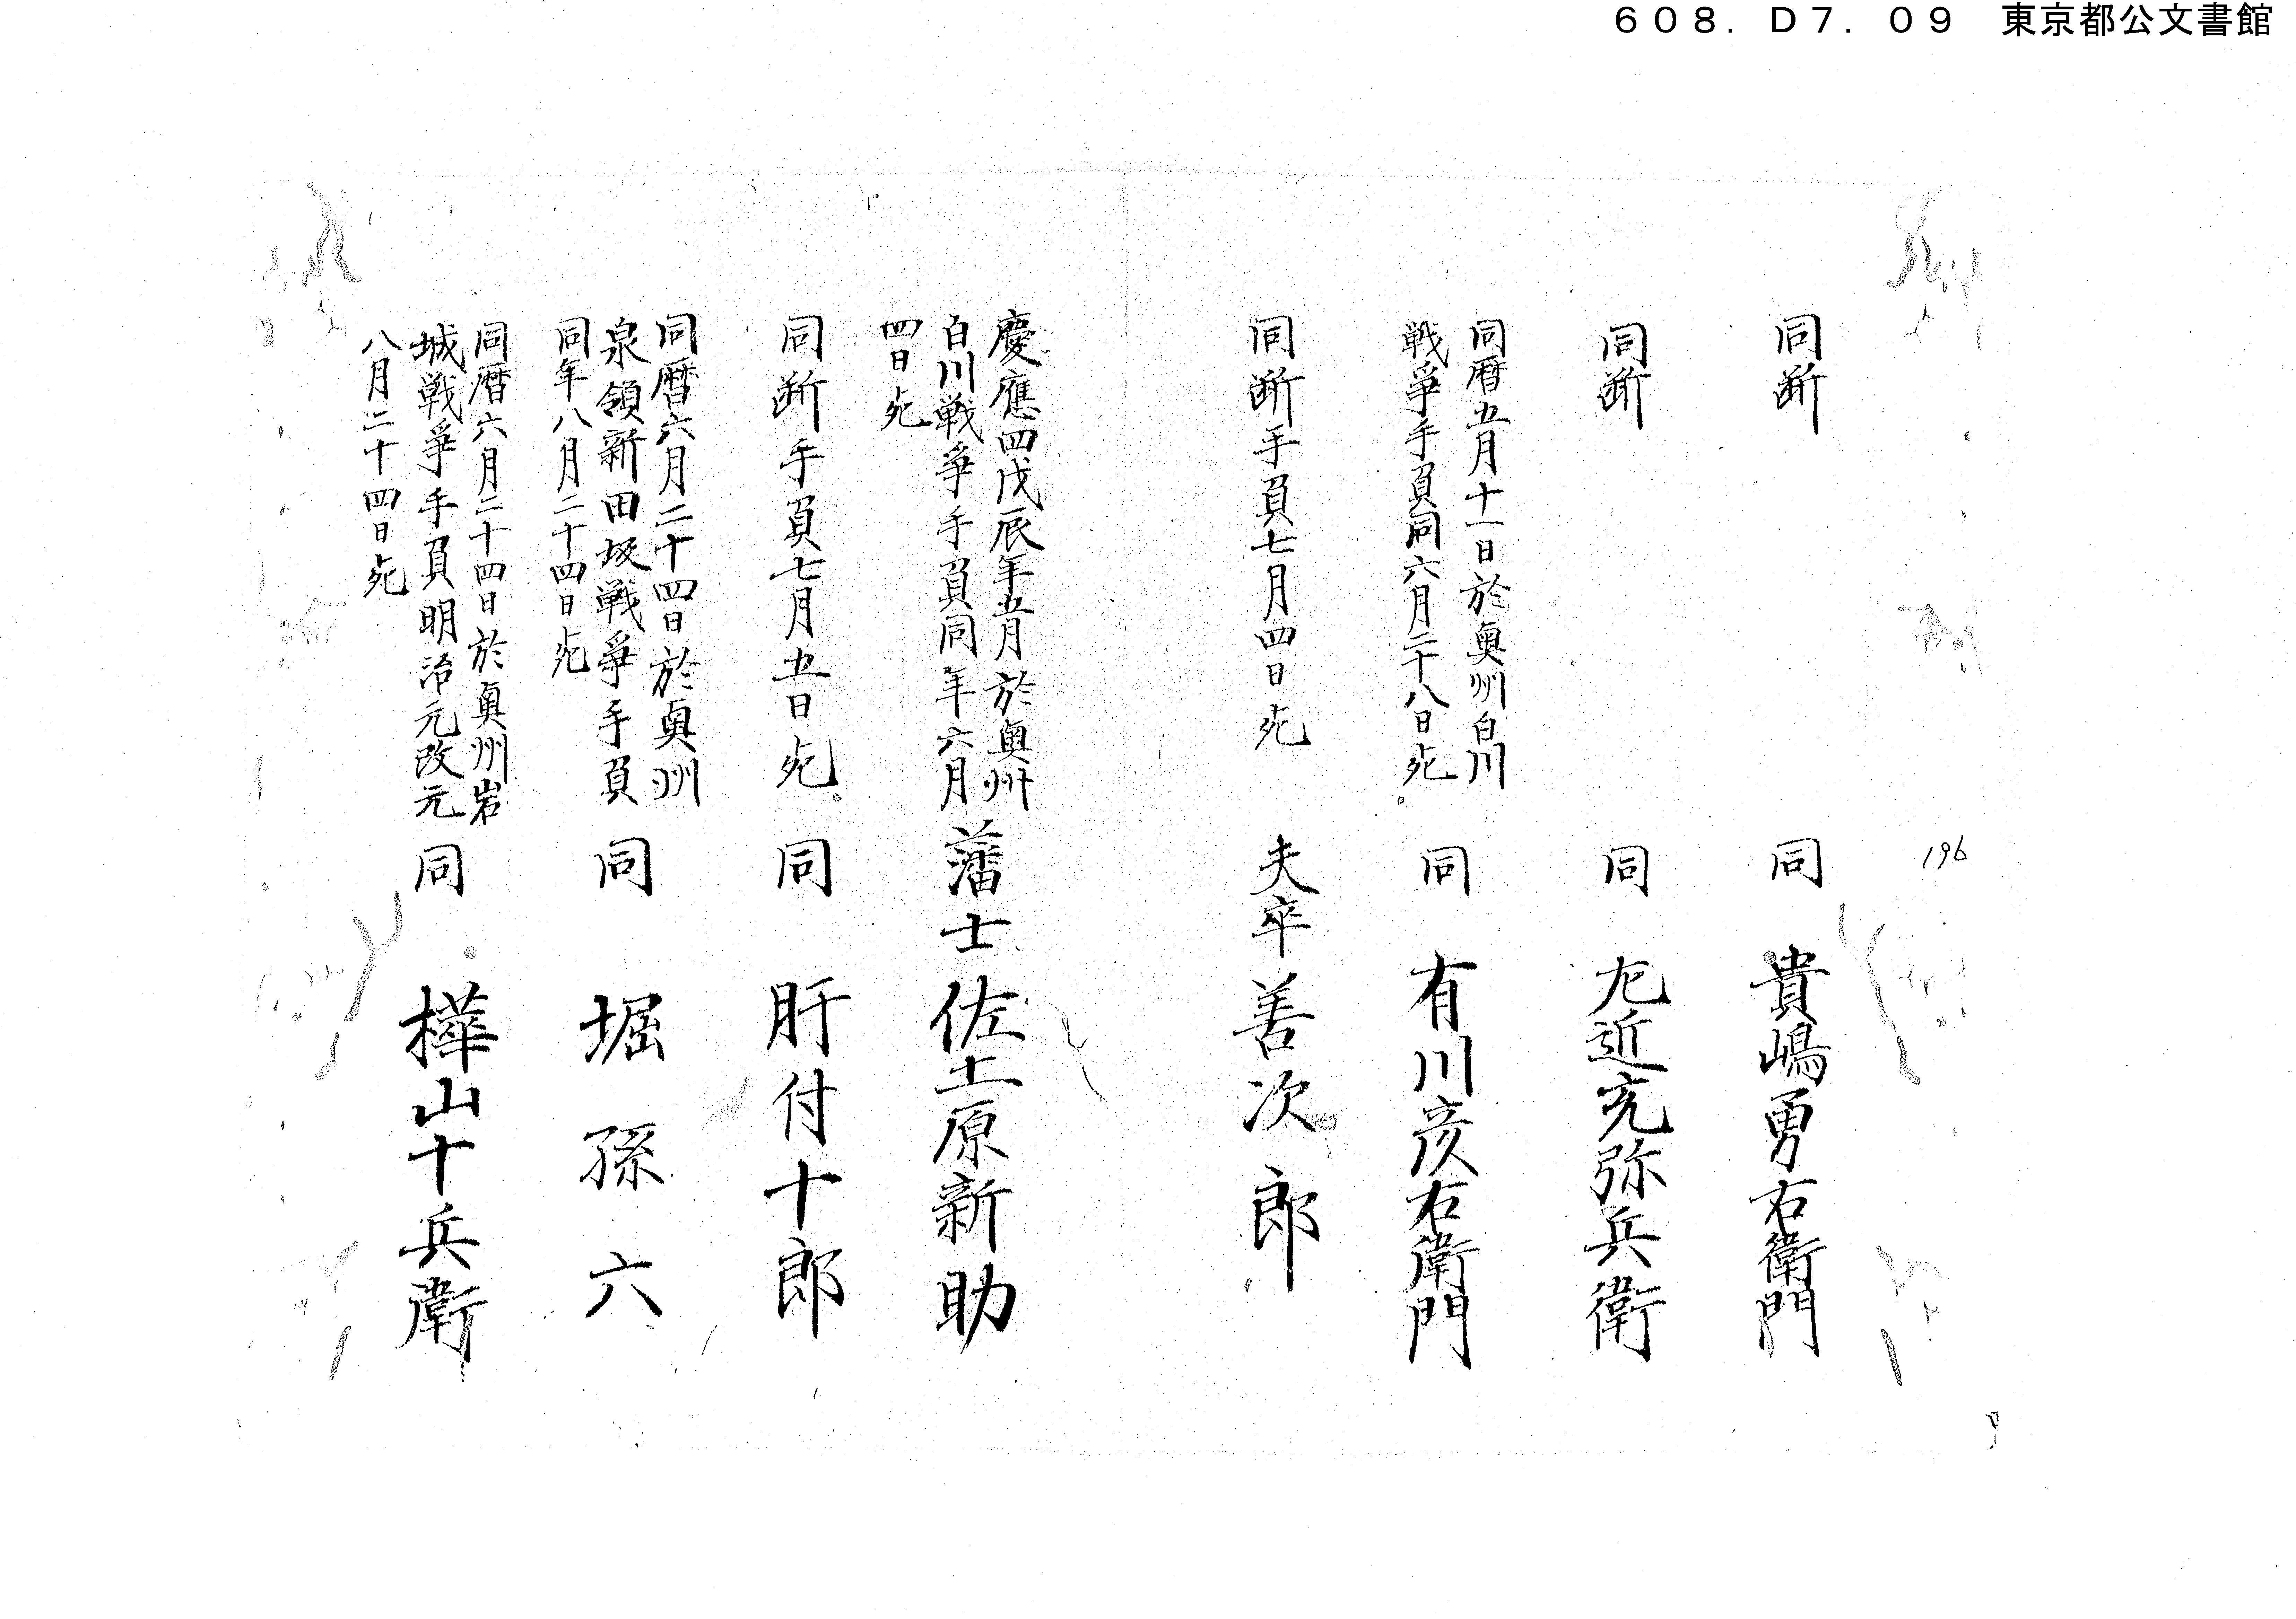 ６０８．Ｄ７．０９　東京都公文書館
196
同断
同　貴嶋勇右衛門
同断
同　左近充弥兵衛
同暦五月十一日於奥州白川
戦争手負同六月二十八日死
同　有川彦右衛門
同断手負七月四日死
夫卒　善次郎
慶應四戊辰年五月於奥州
白川戦争手負同年六月
四日死
藩士　佐土原新助
同断手負七月五日死
同　肝付十郎
同暦六月二十四日於奥州
泉領新田坂戦争手負
同年八月二十四日死
同　堀孫六
同暦六月二十四日於奥州岩
城戦争手負明治元改元
八月二十四日死
同　樺山十兵衛